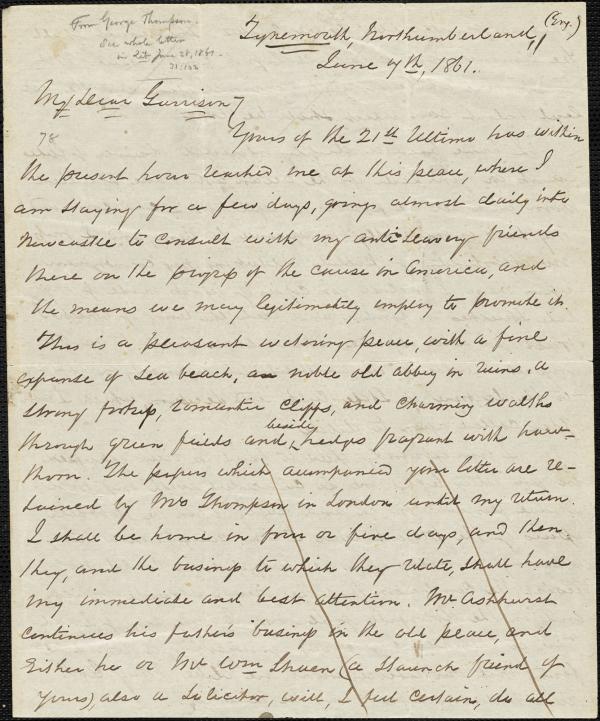 From George Thompson.
See whole letter
in Lib. June 28, 1861.
31:102
Tynemouth, Northumberland, (Eng.)
June 7th, 1861.
My Dear Garrison,
78
Yours of the 21st Ultimo has within
the present hour reached me at this place, where I
am staying for a few days, going almost daily into
Newcastle to consult with my anti Slavery friends
there on the progress of the cause in America, and
the means we may legitimately employ to promote it.
This is a pleasant watering place, with a fine
expanse of Sea beach, a noble old abbey in ruins, a
strong fortress, romantic cliffs, and charming walks
through green fields and, beside, hedges fragrant with haw-
thorn. The papers which accompanied your letter are re-
tained by Mrs Thompson in London until my return.
I shall be home in four or five days, and then
they, and the business to which they relate, shall have
my immediate and best attention. Mr Ashhurst
continues his father's business in the old place, and
Either he or Mr Wm Shaen (a Staunch friend of
yours), also a Solicitor, will, I feel certain, do all